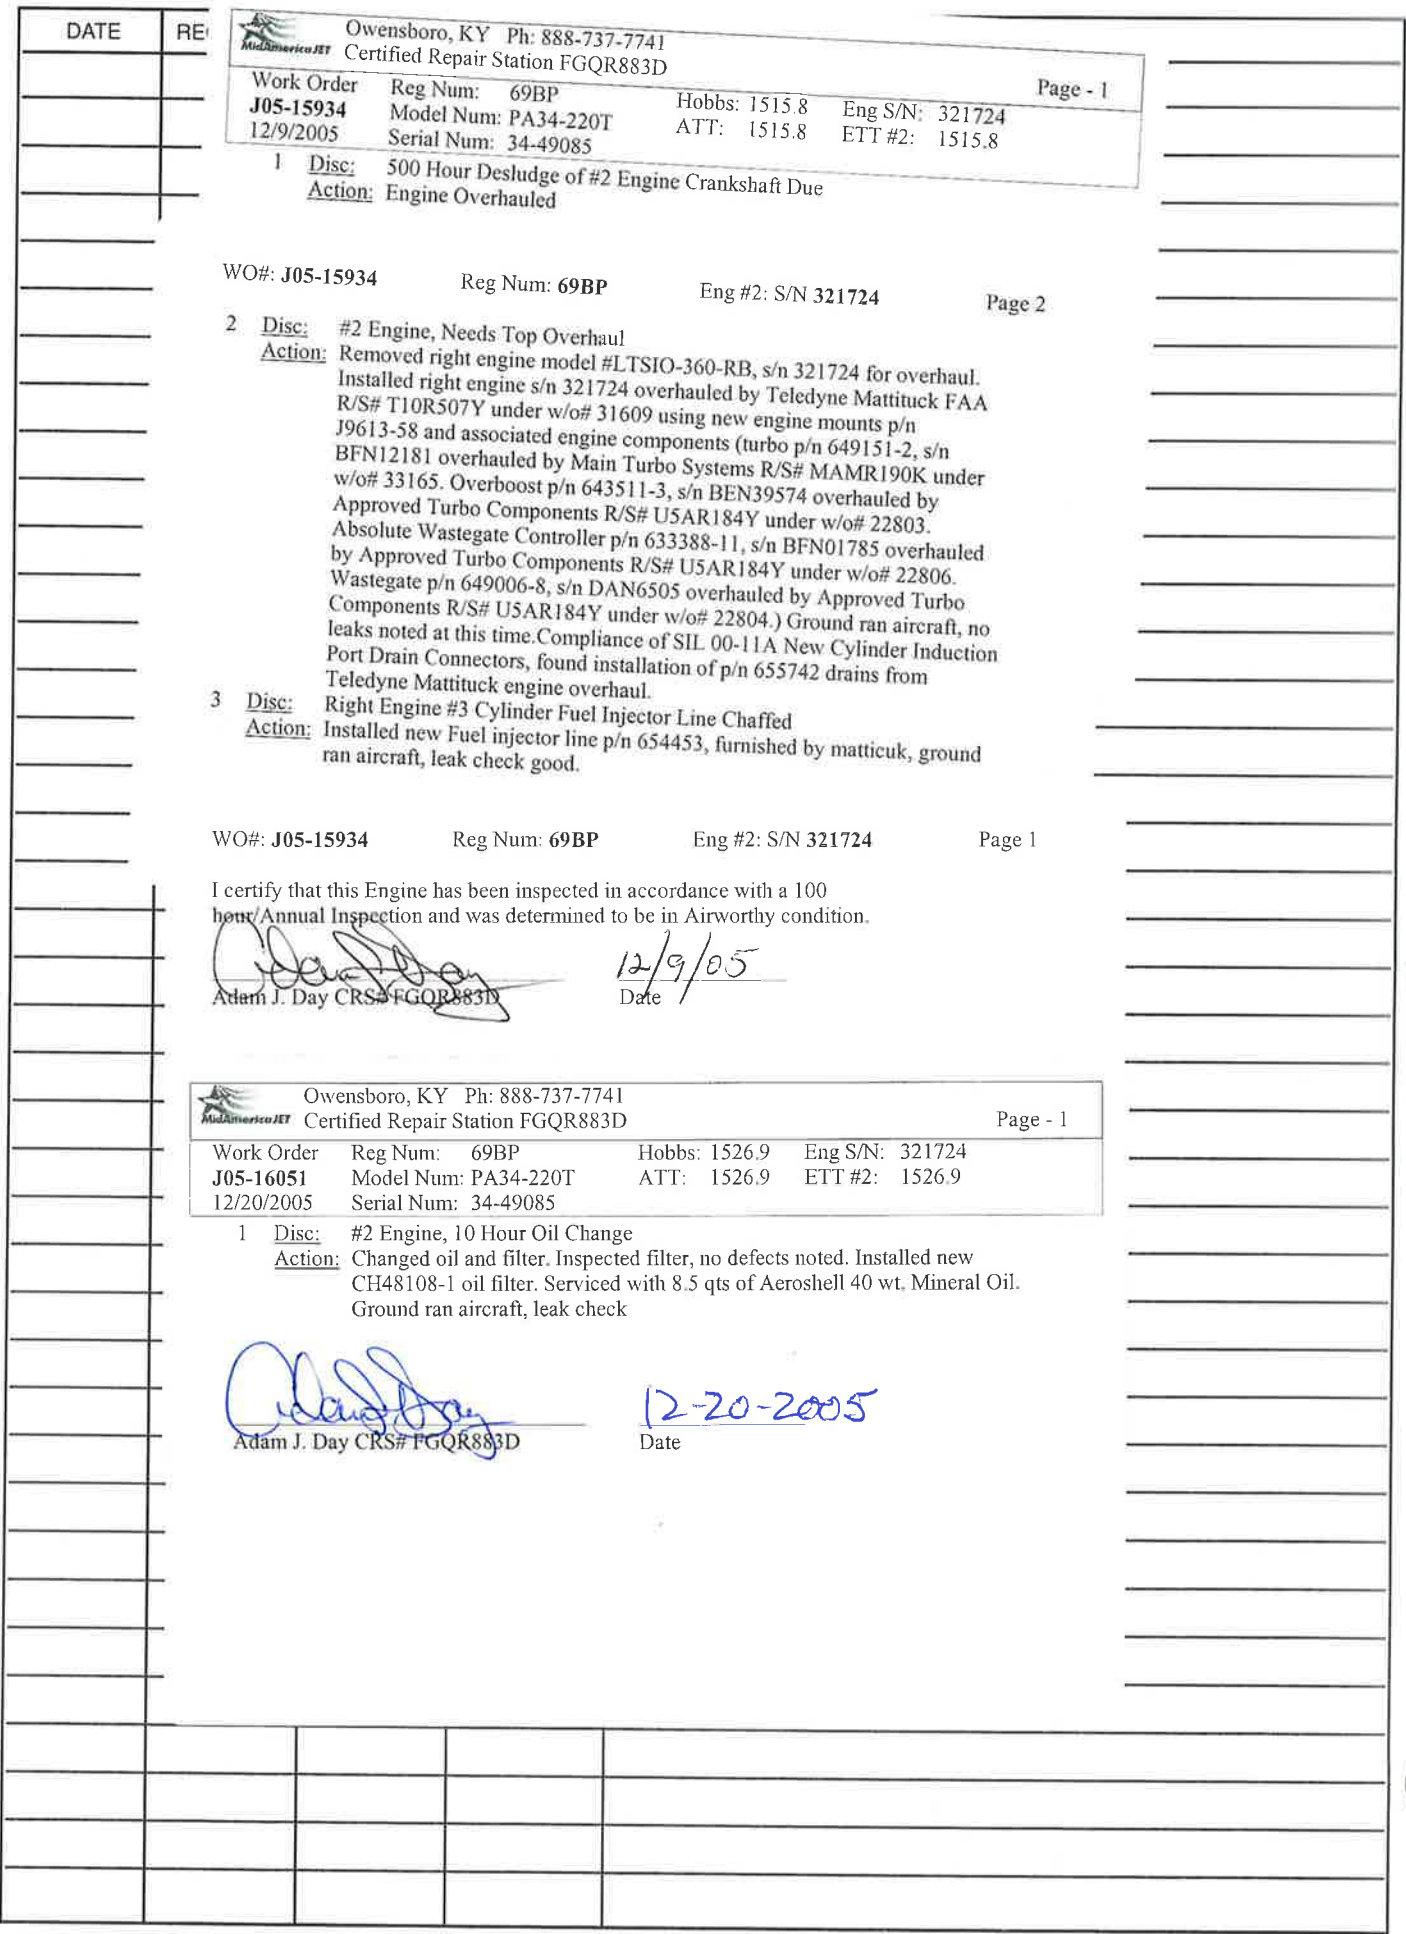 DATE
RE
MidAmericaJET
Owensboro, KY Ph: 888-737-7741
Certified Repair Station FGQR883D
Page - 1
Work Order Reg Num: 69BP Hobbs: 1515.8 Eng S/N: 321724
J05-15934 Model Num: PA34-220T ATT: 1515.8 ETT #2: 1515.8
12/9/2005 Serial Num: 34-49085
1 Disc: 500 Hour Desludge of #2 Engine Crankshaft Due
Action: Engine Overhauled
WO#: J05-15934 Reg Num: 69BP Eng #2: S/N 321724 Page 2
2 Disc: #2 Engine, Needs Top Overhaul
Action: Removed right engine model #LTSIO-360-RB, s/n 321724 for overhaul.
Installed right engine s/n 321724 overhauled by Teledyne Mattituck FAA
R/S# T10R507Y under w/o# 31609 using new engine mounts p/n
J9613-58 and associated engine components (turbo p/n 649151-2, s/n
BFN12181 overhauled by Main Turbo Systems R/S# MAMR190K under
w/o# 33165. Overboost p/n 643511-3, s/n BEN39574 overhauled by
Approved Turbo Components R/S# U5AR184Y under w/o# 22803.
Absolute Wastegate Controller p/n 633388-11, s/n BFN01785 overhauled
by Approved Turbo Components R/S# U5AR184Y under w/o# 22806.
Wastegate p/n 649006-8, s/n DAN6505 overhauled by Approved Turbo
Components R/S# U5AR184Y under w/o# 22804.) Ground ran aircraft, no
leaks noted at this time.Compliance of SIL 00-11A New Cylinder Induction
Port Drain Connectors, found installation of p/n 655742 drains from
Teledyne Mattituck engine overhaul.
3 Disc: Right Engine #3 Cylinder Fuel Injector Line Chaffed
Action: Installed new Fuel injector line p/n 654453, furnished by matticuk, ground
ran aircraft, leak check good.
WO#: J05-15934 Reg Num: 69BP Eng #2: S/N 321724 Page 1
I certify that this Engine has been inspected in accordance with a 100
hour/Annual Inspection and was determined to be in Airworthy condition.
12/9/05
Adam J. Day CRS# FGQR883D Date
MidAmericaJET
Owensboro, KY Ph: 888-737-7741
Certified Repair Station FGQR883D Page - 1
Work Order Reg Num: 69BP Hobbs: 1526.9 Eng S/N: 321724
J05-16051 Model Num: PA34-220T ATT: 1526.9 ETT #2: 1526.9
12/20/2005 Serial Num: 34-49085
1 Disc: #2 Engine, 10 Hour Oil Change
Action: Changed oil and filter. Inspected filter, no defects noted. Installed new
CH48108-1 oil filter. Serviced with 8.5 qts of Aeroshell 40 wt. Mineral Oil.
Ground ran aircraft, leak check
12-20-2005
Adam J. Day CRS# FGQR883D Date